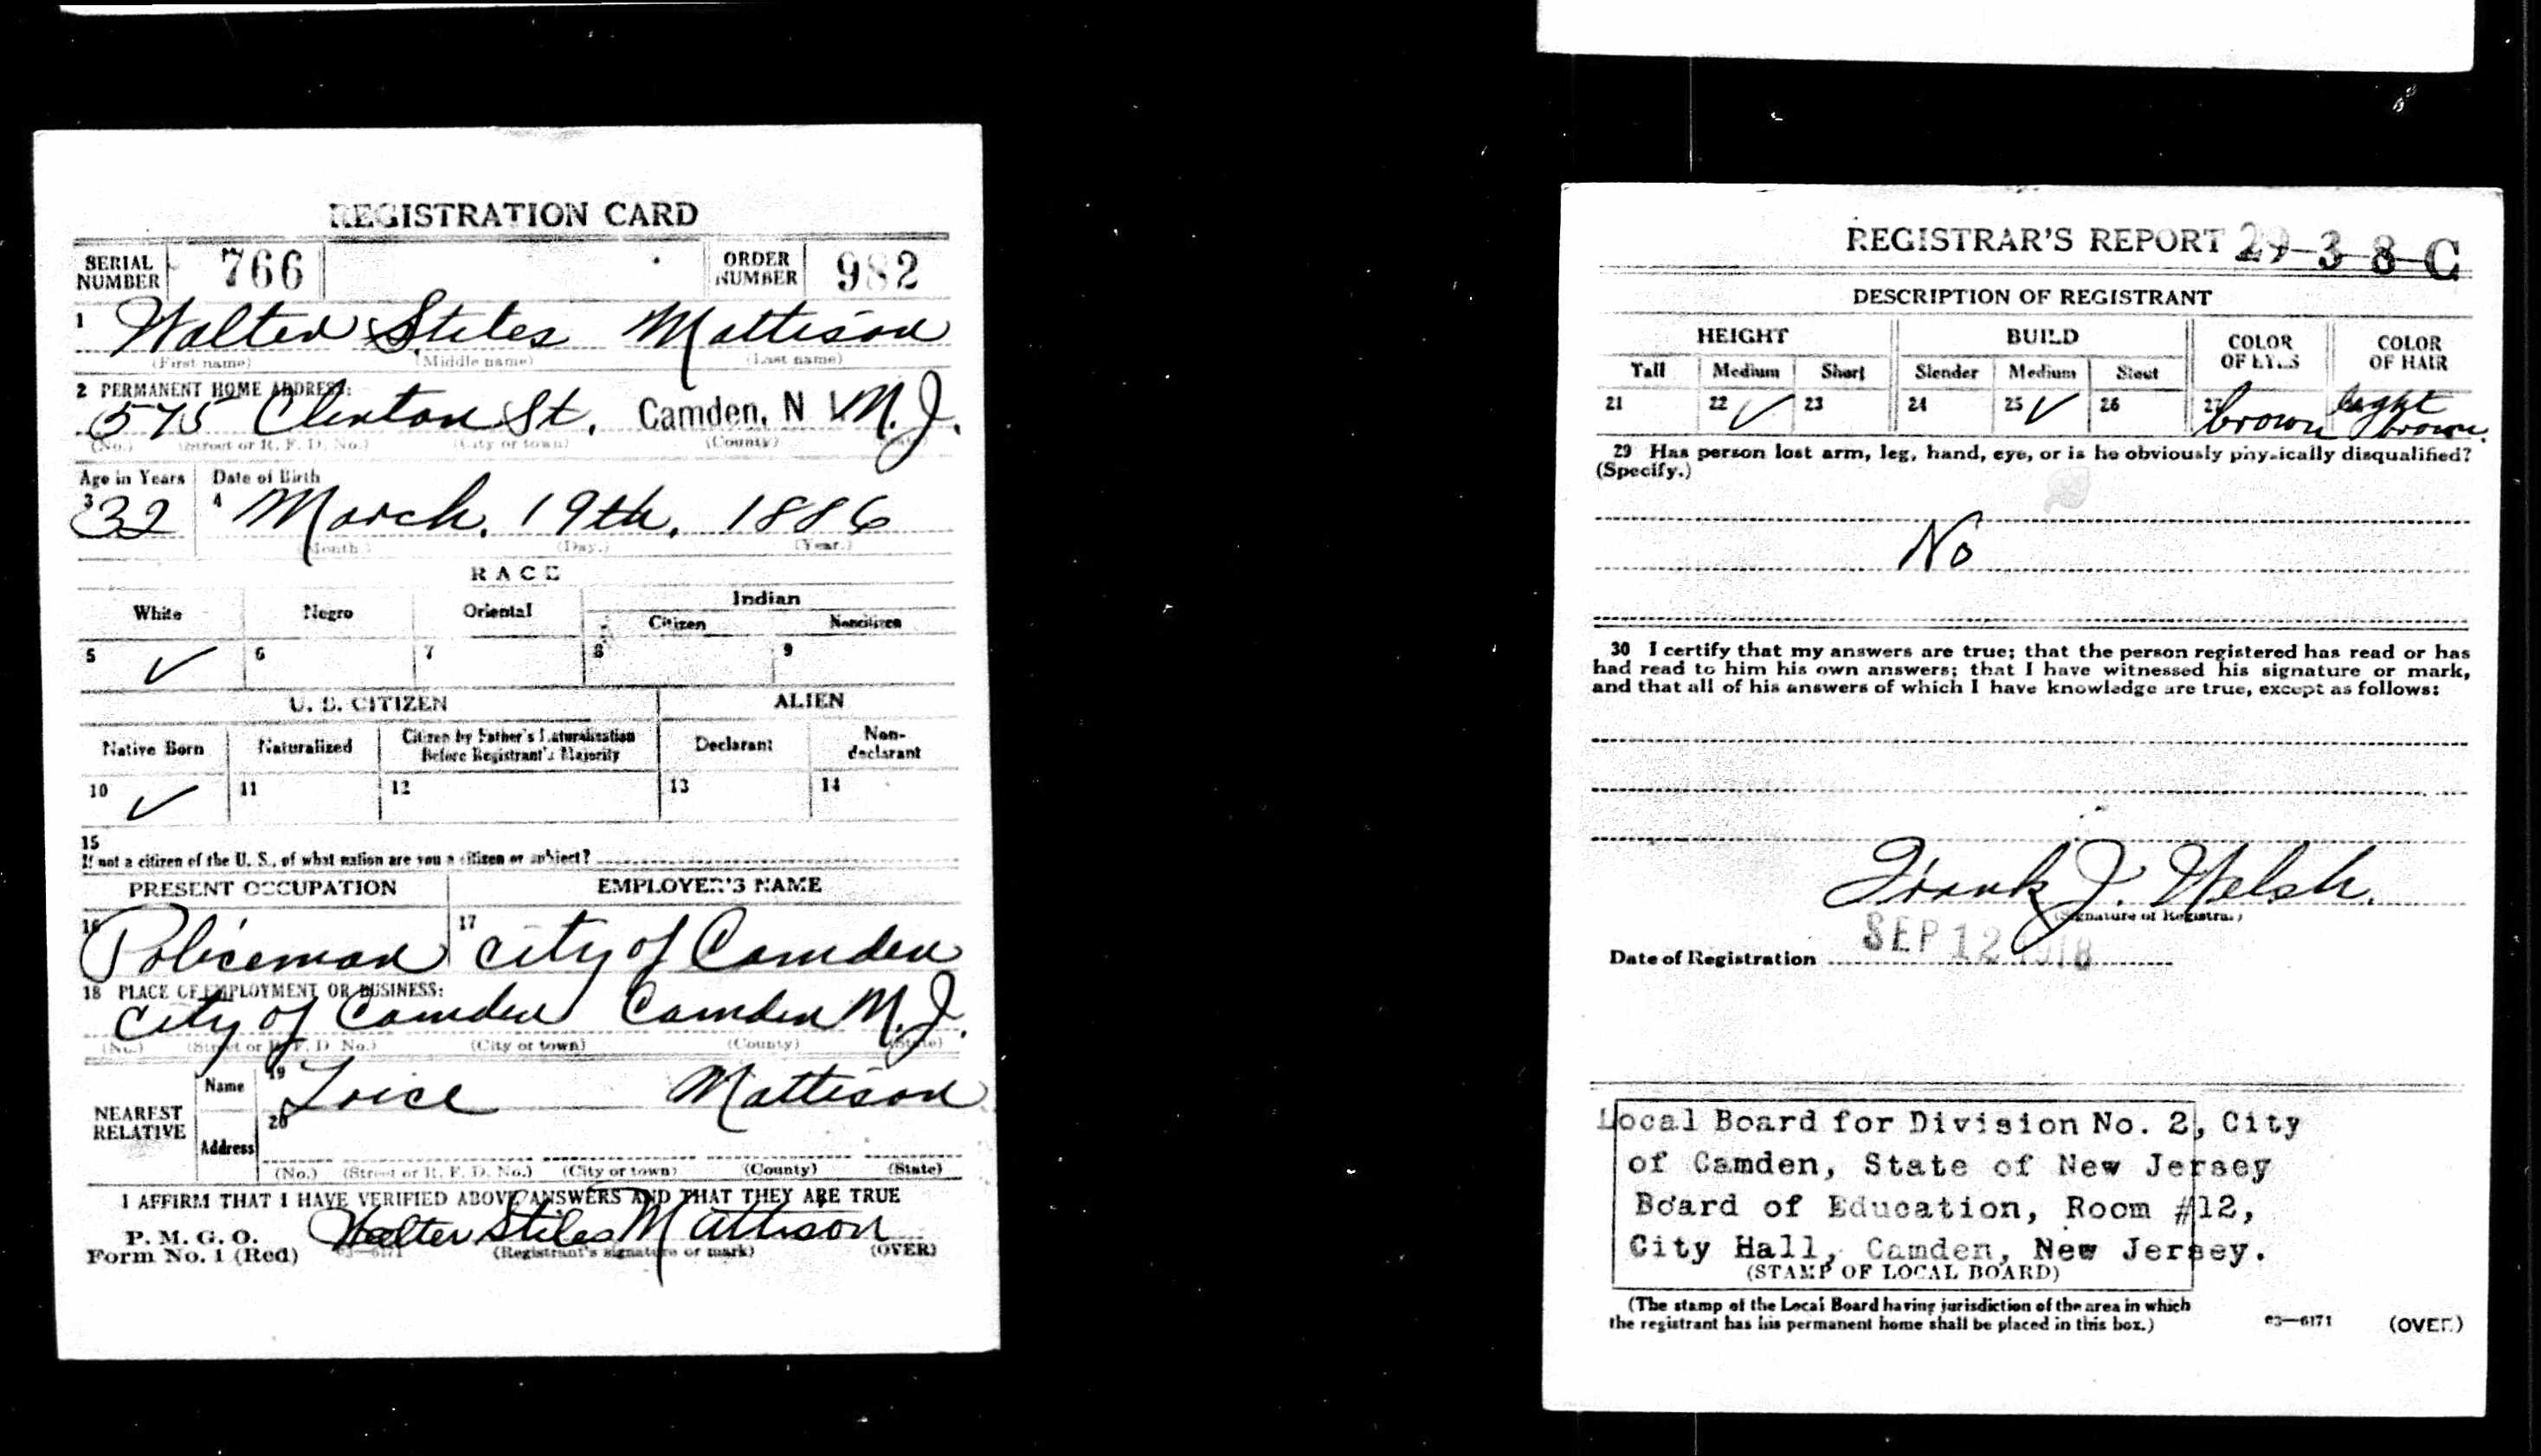 REGISTRATION CARD
SERIAL NUMBER 766 ORDER NUMBER 982
1 Walter Stiles Mattison
(First name) (Middle name) (Last name)
2 PERMANENT HOME ADDRESS:
575 Clinton St. Camden, N N.J.
(No.) (Street or R. F. D. No.) (City or town) (County)
Age in Years Date of Birth
3 32 4 March. 19th. 1886
(Month.) (Day.) (Year.)
RACE
White Negro Oriental Indian
Citizen Noncitizen
5 ✓ 6 7 8 9
U. S. CITIZEN ALIEN
Native Born Naturalized Citizen by Father's Naturalization Before Registrant's Majority Declarant Non-declarant
10 ✓ 11 12 13 14
15
If not a citizen of the U. S., of what nation are you a citizen or subject?
PRESENT OCCUPATION EMPLOYER'S NAME
16 Policeman 17 City of Camden
18 PLACE OF EMPLOYMENT OR BUSINESS:
City of Camden Camden N.J.
(No.) (Street or R. F. D. No.) (City or town) (County) (State)
NEAREST RELATIVE Name 19 Mattison
Address 20
(No.) (Street or R. F. D. No.) (City or town) (County) (State)
I AFFIRM THAT I HAVE VERIFIED ABOVE ANSWERS AND THAT THEY ARE TRUE
P. M. G. O.
Form No. 1 (Red) 03—6171 Walter Stiles Mattison
(Registrant's signature or mark) (OVER)
REGISTRAR'S REPORT 29-3-8-C
DESCRIPTION OF REGISTRANT
HEIGHT BUILD COLOR OF EYES COLOR OF HAIR
Tall Medium Short Slender Medium Stout
21 22 ✓ 23 24 25 ✓ 26 27 brown light brown.
29 Has person lost arm, leg, hand, eye, or is he obviously physically disqualified?
(Specify.)
No
30 I certify that my answers are true; that the person registered has read or has
had read to him his own answers; that I have witnessed his signature or mark,
and that all of his answers of which I have knowledge are true, except as follows:
Frank J. Welsh.
(Signature of Registrar)
Date of Registration SEP 12 1918
Local Board for Division No. 2, City
of Camden, State of New Jersey
Board of Education, Room #12,
City Hall, Camden, New Jersey.
(STAMP OF LOCAL BOARD)
(The stamp of the Local Board having jurisdiction of the area in which
the registrant has his permanent home shall be placed in this box.)
03—6171 (OVER)